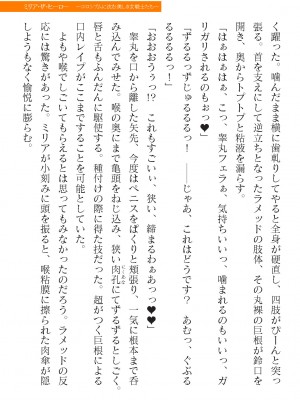 ミリア・ザ・ヒーロー
く躍った。噛んだまま横に歯軋りしてやると全身が硬直し、四肢がぴーんと突っ
張る。首を支えにして逆立ちとなったラメッドの肢体、その丸裸の巨根が鈴口を
開き、奥からトプトプと粘液を漏らす。
「はぁはぁはぁ、こっ、睾丸フェラぁ、気持ちいいっ、噛まれるのもいいっ、ガ
リガリされるのもぉっ♥」
「ずるるっずじゅるるるっ！　――じゃあ、これはどうです？　あむっ、ぐぶる
るるるっ！」
「おおおうぅっ!?　これもすごいぃ、狭い、締まるわぁあっ♥♥」
　睾丸を口から離した矢先、今度はペニスをぱくりと頬張り、一気に根本まで呑
み込んでみせた。喉の奥にまで亀頭をねじ込み、狭い肉孔にてずるずるとしごく。
唇と舌もふんだんに駆使する。種付けの際に得た技だった。超がつく巨根による
口内レイプがここまですることを可能としていた。
　よもや喉でしごいてもらえるとは思ってもみなかったのだろう。ラメッドの反
応には驚きがあった。ミリアが小刻みに頭を振ると、喉粘膜に擦られた肉傘が隠
しようもなく愉悦に膨らむ。